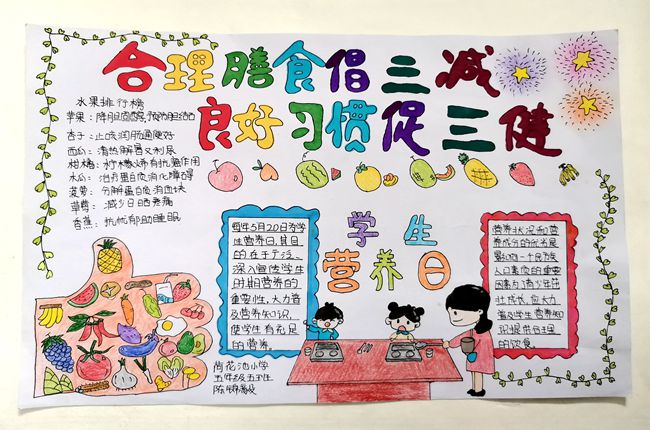 合理膳食倡三减
良好习惯促三健
水果排行榜
苹果：降胆固醇,预防胆结石
杏子：止咳润肠通便好
西瓜：清热解暑又利尿
柑橘：柠檬烯有抗癌作用
木瓜：治疗蛋白质消化障碍
菠萝：分解蛋白质消血块
草莓：减少日晒疼痛
香蕉：抗忧郁助睡眠
学生
营养日
每年5月20日为学
生营养日,其目
的在于广泛、
深入宣传学生
时期营养的
重要性,大力普
及营养知识,
使学生有充足
的营养。
营养状况和营
养成分的优劣是
影响一个民族
人口素质的重要
因素,为了青少年茁
壮成长,应大力
普及学生营养知
识,提倡合理
的饮食。
荷花池小学
五年级五班
陈